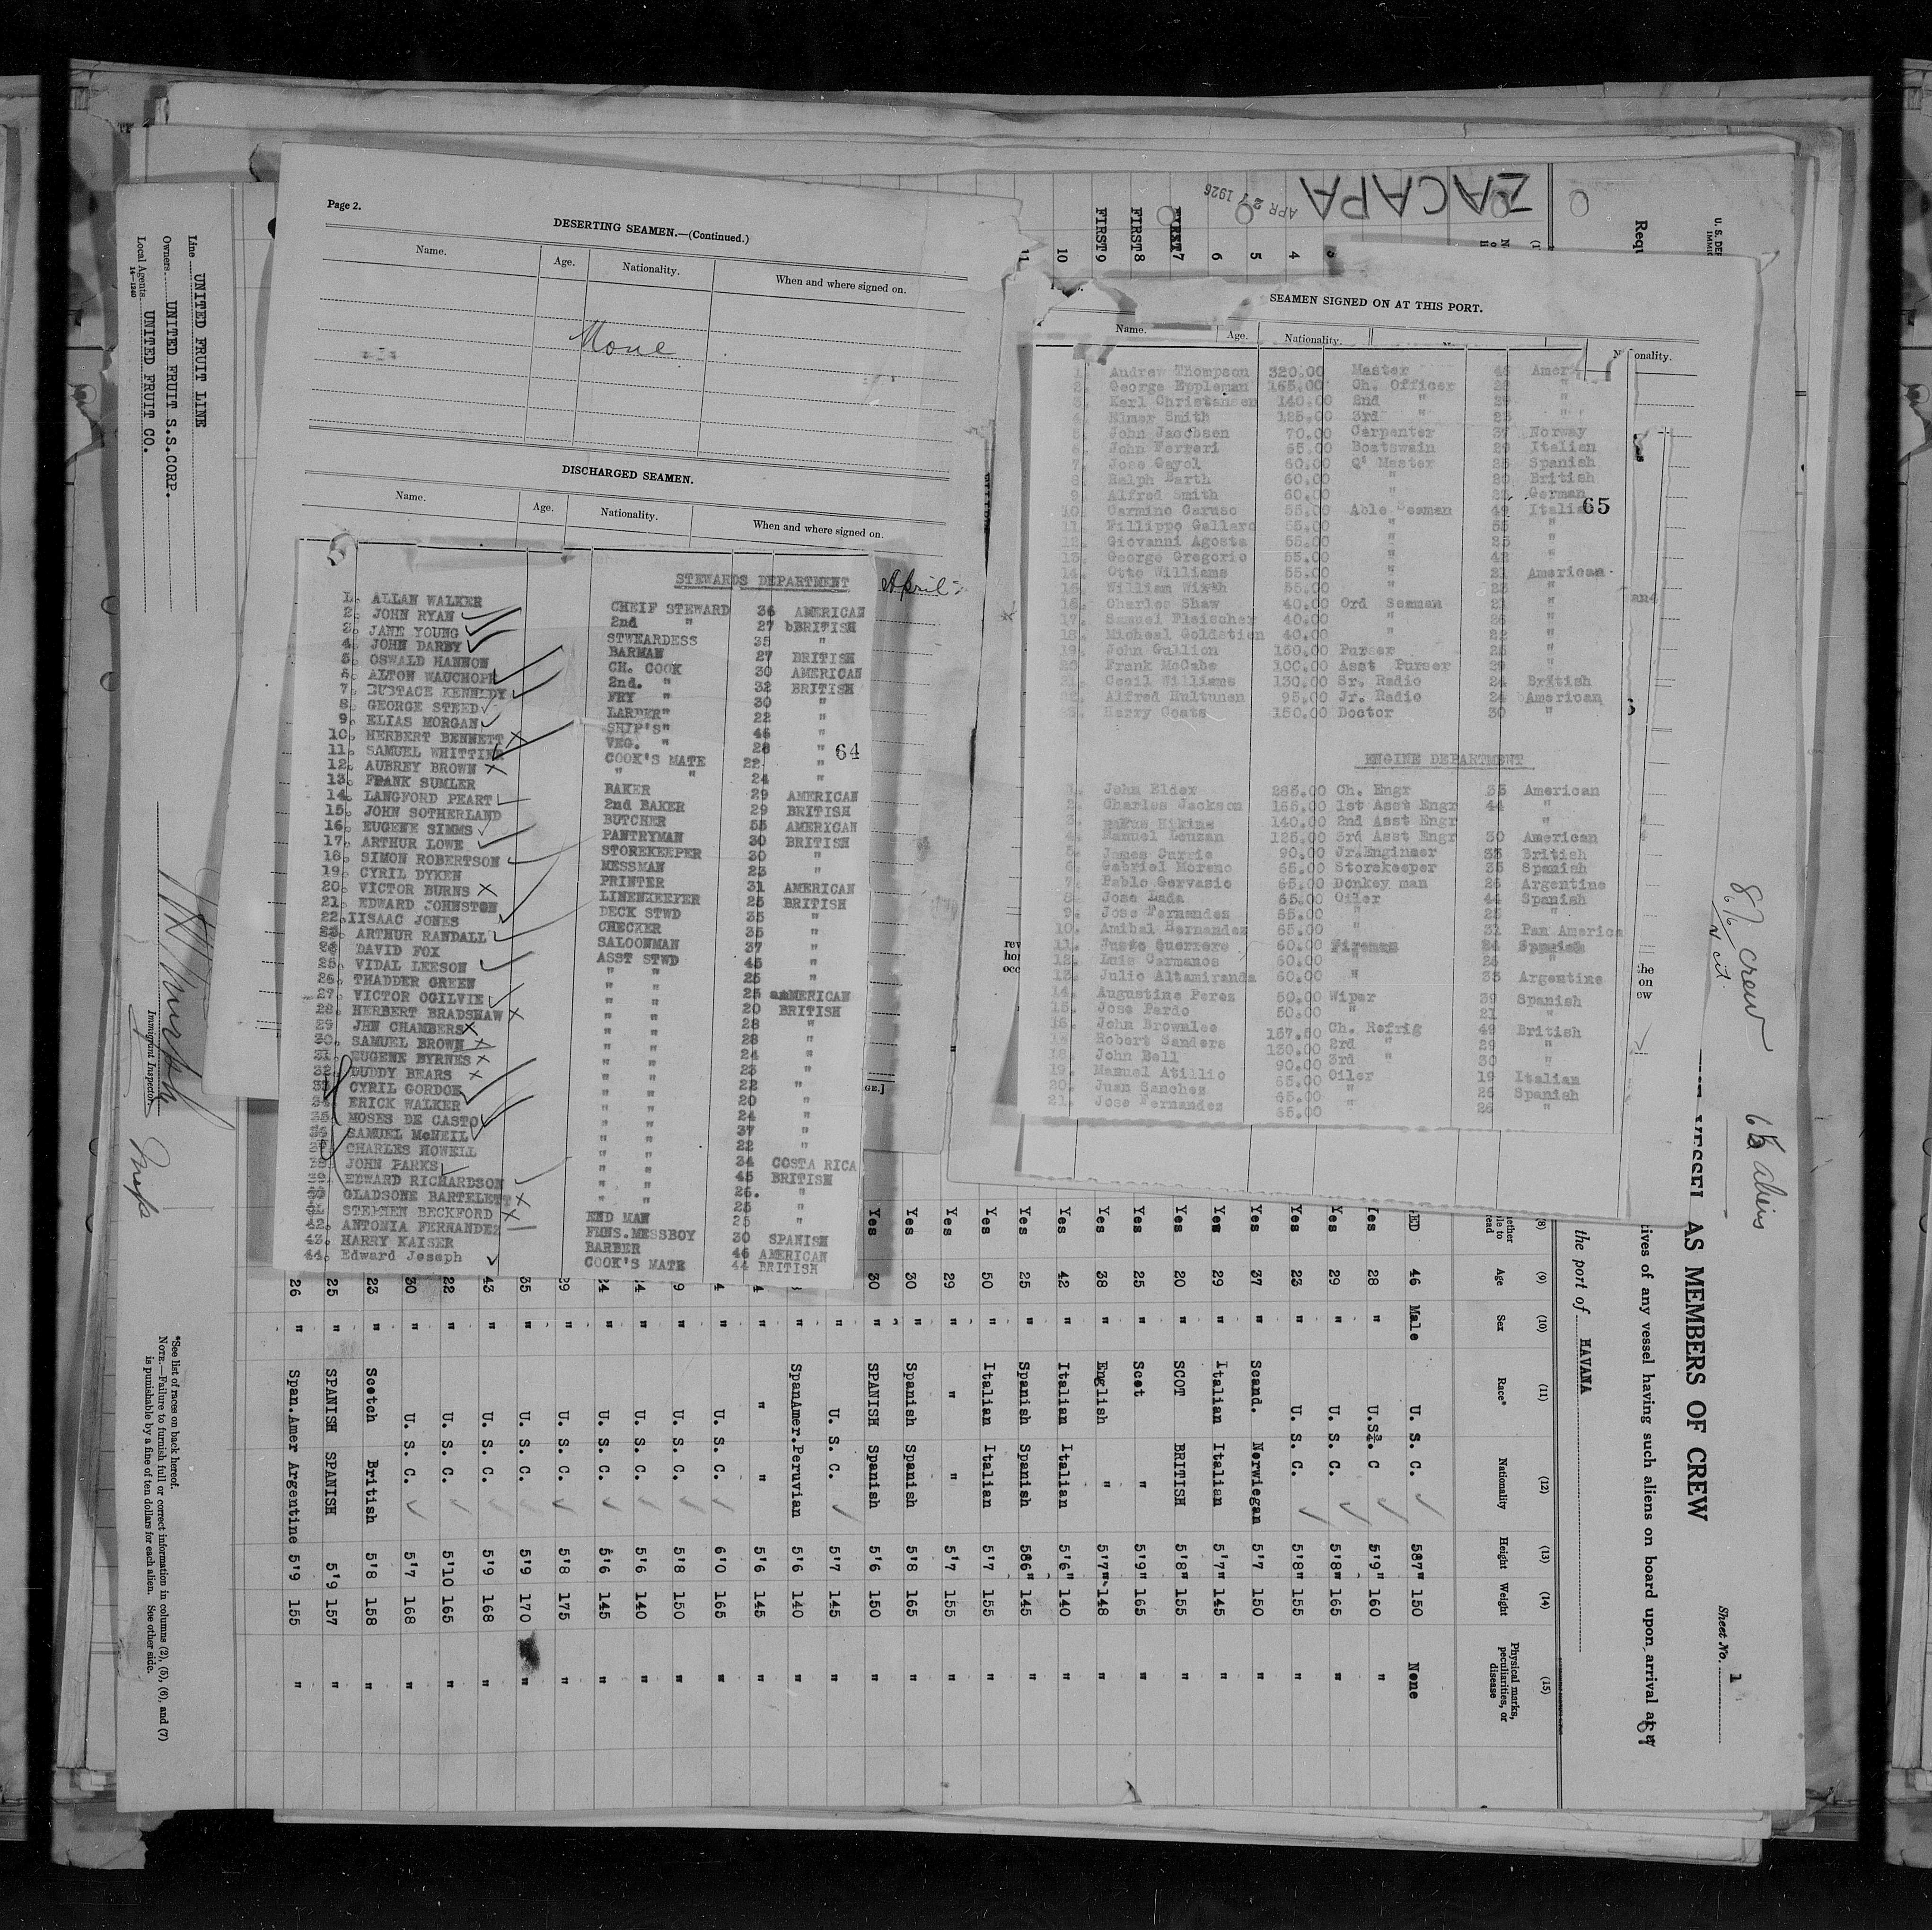 Page 2.
DESERTING SEAMEN.—(Continued.)
Name. Age. Nationality. When and where signed on.
None
DISCHARGED SEAMEN.
Name. Age. Nationality. When and where signed on.
STEWARDS DEPARTMENT
April
1. ALLAN WALKER CHEIF STEWARD 36 AMERICAN
2. JOHN RYAN 2nd " 27 bBRITISH
3. JANE YOUNG STWEARDESS 35 "
4. JOHN DARBY BARMAN 27 BRITISH
5. OSWALD HANNON CH. COOK 30 AMERICAN
6. ALTON WAUCHOPE 2nd. " 32 BRITISH
7. EUSTACE KENNEDY FRY " 30 "
8. GEORGE STEED LARDER" 22 "
9. ELIAS MORGAN SHIP'S" 46 "
10. HERBERT BENNETT VEG. " 28 "
64
11. SAMUEL WHITTIER COOK'S MATE 22 "
12. AUBREY BROWN " " 24 "
13. FRANK SUMLER BAKER 29 AMERICAN
14. LANGFORD PEART 2nd BAKER 29 BRITISH
15. JOHN SOTHERLAND BUTCHER 55 AMERICAN
16. EUGENE SIMMS PANTRYMAN 30 BRITISH
17. ARTHUR LOWE STOREKEEPER 30 "
18. SIMON ROBERTSON MESSMAN 23 "
19. CYRIL DYKEN PRINTER 31 AMERICAN
20. VICTOR BURNS LINENKEEFER 25 BRITISH
21. EDWARD JOHNSTON DECK STWD 35 "
22. IISAAC JONES CHECKER 35 "
23. ARTHUR RANDALL SALOONMAN 37 "
24 DAVID FOX ASST STWD 45 "
25. VIDAL LEESON " " 25 "
26. THADDER GREEN " " 25 amMERICAN
27. VICTOR OGILVIE " " 20 BRITISH
28. HERBERT BRADSHAW " " 28 "
29 JHN CHAMBERS " " 28 "
30. SAMUEL BROWN " " 24 "
31. EUGENE BYRNES " " 23 "
32. DUDDY BEARS " " 22 "
33 CYRIL GORDON " " 20 "
34 ERICK WALKER " " 24 "
35 MOSES DE CASTO " " 37 "
36 SAMUEL McNEIL " " 22 "
CHARLES HOWELL " " 34 COSTA RICA
JOHN PARKS " " 45 BRITISH
39. EDWARD RICHARDSON " " 26. "
GLADSONE BARTELETT " " 25 "
STEPHEN BECKFORD END MAN 25 "
42. ANTONIA FERNANDEZ FMNS.MESSBOY 30 SPANISH
43. HARRY KAISER BARBER 46 AMERICAN
44. Edward Joseph COOK'S MATE 44 BRITISH
SEAMEN SIGNED ON AT THIS PORT.
Name. Age. Nationality.
1. Audrew Thompson 320.00 Master 46 Amer
2. George Eppleman 165.00 Ch. Officer 28 "
3. Karl Christansen 140.00 2nd " 29 "
4. Elmer Smith 125.00 3rd " 23 "
5. John Jacobsen 70.00 Carpenter 37 Norway
6. John Ferreri 65.00 Boatswain 29 Italian
7. Jose Gayol 60.00 Qr Master 25 Spanish
8. Ralph Barth 60.00 " 20 British
9. Alfred Smith 60.00 " 22 German
65
10. Carmino Caruso 55.00 Able Seaman 49 Italian
11. Fillippo Gallaro 55.00 " 55 "
12. Giovanni Agosta 55.00 " 25 "
13. George Gregorio 55.00 " 42 "
14. Otto Williams 55.00 " 21 American
15. William Wirth 55.00 " 23 "
16. Charles Shaw 40.00 Ord Seaman 21 "
17. Samuel Fleischer 40.00 " 26 "
18. Micheal Goldstien 40.00 " 22 "
19. John Gullion 150.00 Purser 25 "
20 Frank McCabe 100.00 Asst Purser 29 "
21. Cecil Williams 130.00 Sr. Radio 24 British
22. Alfred Hultunen 95.00 Jr. Radio 24 American
23. Harry Coats 150.00 Doctor 30 "
ENGINE DEPARTMENT
1. John Elder 285.00 Ch. Engr 35 American
2. Charles Jackson 165.00 1st Asst Engr 44 "
3. Hikins 140.00 2nd Asst Engr
4. Manuel Louzan 125.00 3rd Asst Engr 30 American
5. James Currie 90.00 Jr.Enginner 33 British
6. Gabriel Moreno 65.00 Storekeeper 35 Spanish
7. Pablo Gervasio 65.00 Donkey man 26 Argentine
8. Jose Lada 65.00 Oiler 44 Spanish
9. Jose Fernandez 65.00 " 25 "
10. Amibal Hernandez 65.00 " 31 Pan America
11. Justo Guerrero 60.00 Fireman 24 Spanish
12. Luis Carmanos 60.00 " 25 "
13. Julio Altamiranda 60.00 " 33 Argentine
14. Augustine Perez 50.00 Wiper 39 Spanish
15. Jose Pardo 50.00 " 21 "
16. John Brownlee 157.50 Ch. Refrig 49 British
17. Robert Sanders 130.00 2rd " 29 "
18. John Bell 90.00 3rd " 30 "
19. Manuel Atillio 65.00 Oiler 19 Italian
20. Juan Sanchez 65.00 " 26 Spanish
21. Jose Fernandez 65.00 " 26 "
ZACAPA
APR 27 1926
Line UNITED FRUIT LINE
Owners UNITED FRUIT S.S.CORP.
Local Agents UNITED FRUIT CO.
14—1240
Immigrant Inspector
Insp
Sheet No. 1
VESSEL AS MEMBERS OF CREW
tives of any vessel having such aliens on board upon arrival at
the port of HAVANA
87 crew
65 aliens
(8) (9) Age (10) Sex (11) Race* (12) Nationality (13) Height (14) Weight (15) Physical marks, peculiarities, or disease
46 Male U. S. C. 5'7" 150 None
Yes 28 " U.S. C 5'9" 160 "
Yes 29 " U. S. C. 5'8" 165 "
Yes 23 " U. S. C. 5'8" 155 "
Yes 37 " Scand. Norwiegan 5'7 150 "
Yes 29 " Italian Italian 5'7" 145 "
Yes 20 " SCOT BRITISH 5'8" 155 "
Yes 25 " Scot " 5'9" 165 "
Yes 38 " English " 5'7" 148 "
Yes 42 " Italian Italian 5'6" 140 "
Yes 25 " Spanish Spanish 5'6" 145 "
Yes 50 " Italian Italian 5'7 155 "
Yes 29 " " " 5'7 155 "
Yes 30 " Spanish Spanish 5'8 165 "
Yes 30 " SPANISH Spanish 5'6 150 "
" U. S. C. 5'7 145 "
" SpanAmer.Peruvian 5'6 140 "
" " " 5'6 145 "
" U. S. C. 6'0 165 "
" U. S. C. 5'8 150 "
" U. S. C. 5'6 140 "
" U. S. C. 5'6 145 "
" U. S. C. 5'8 175 "
35 " U. S. C. 5'9 170 "
43 " U. S. C. 5'9 168 "
22 " U. S. C. 5'10 165 "
30 " U. S. C. 5'7 168 "
23 " Scotch British 5'8 158 "
25 " SPANISH SPANISH 5'9 157 "
26 " Span.Amer Argentine 5'9 155 "
*See list of races on back hereof.
NOTE.—Failure to furnish full or correct information in columns (2), (5), (6), and (7)
is punishable by a fine of ten dollars for each alien. See other side.